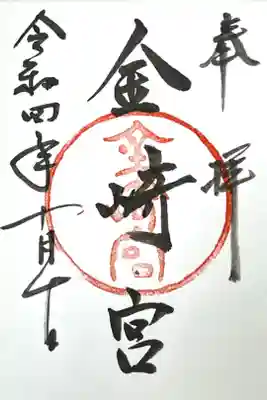 奉拝
金崎宮
令和四年十月十日